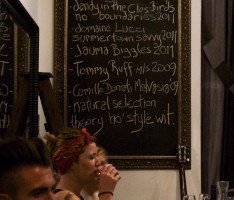 dandy in the Clos Birds
no boundaries 2011
domaine Lucci
summertown savvy 2011
Jauma Biggles 2011
Tommy Ruff m/s 2009
Camillo Donati Malvasia 09
natural selection
theory 'ho' style wit.